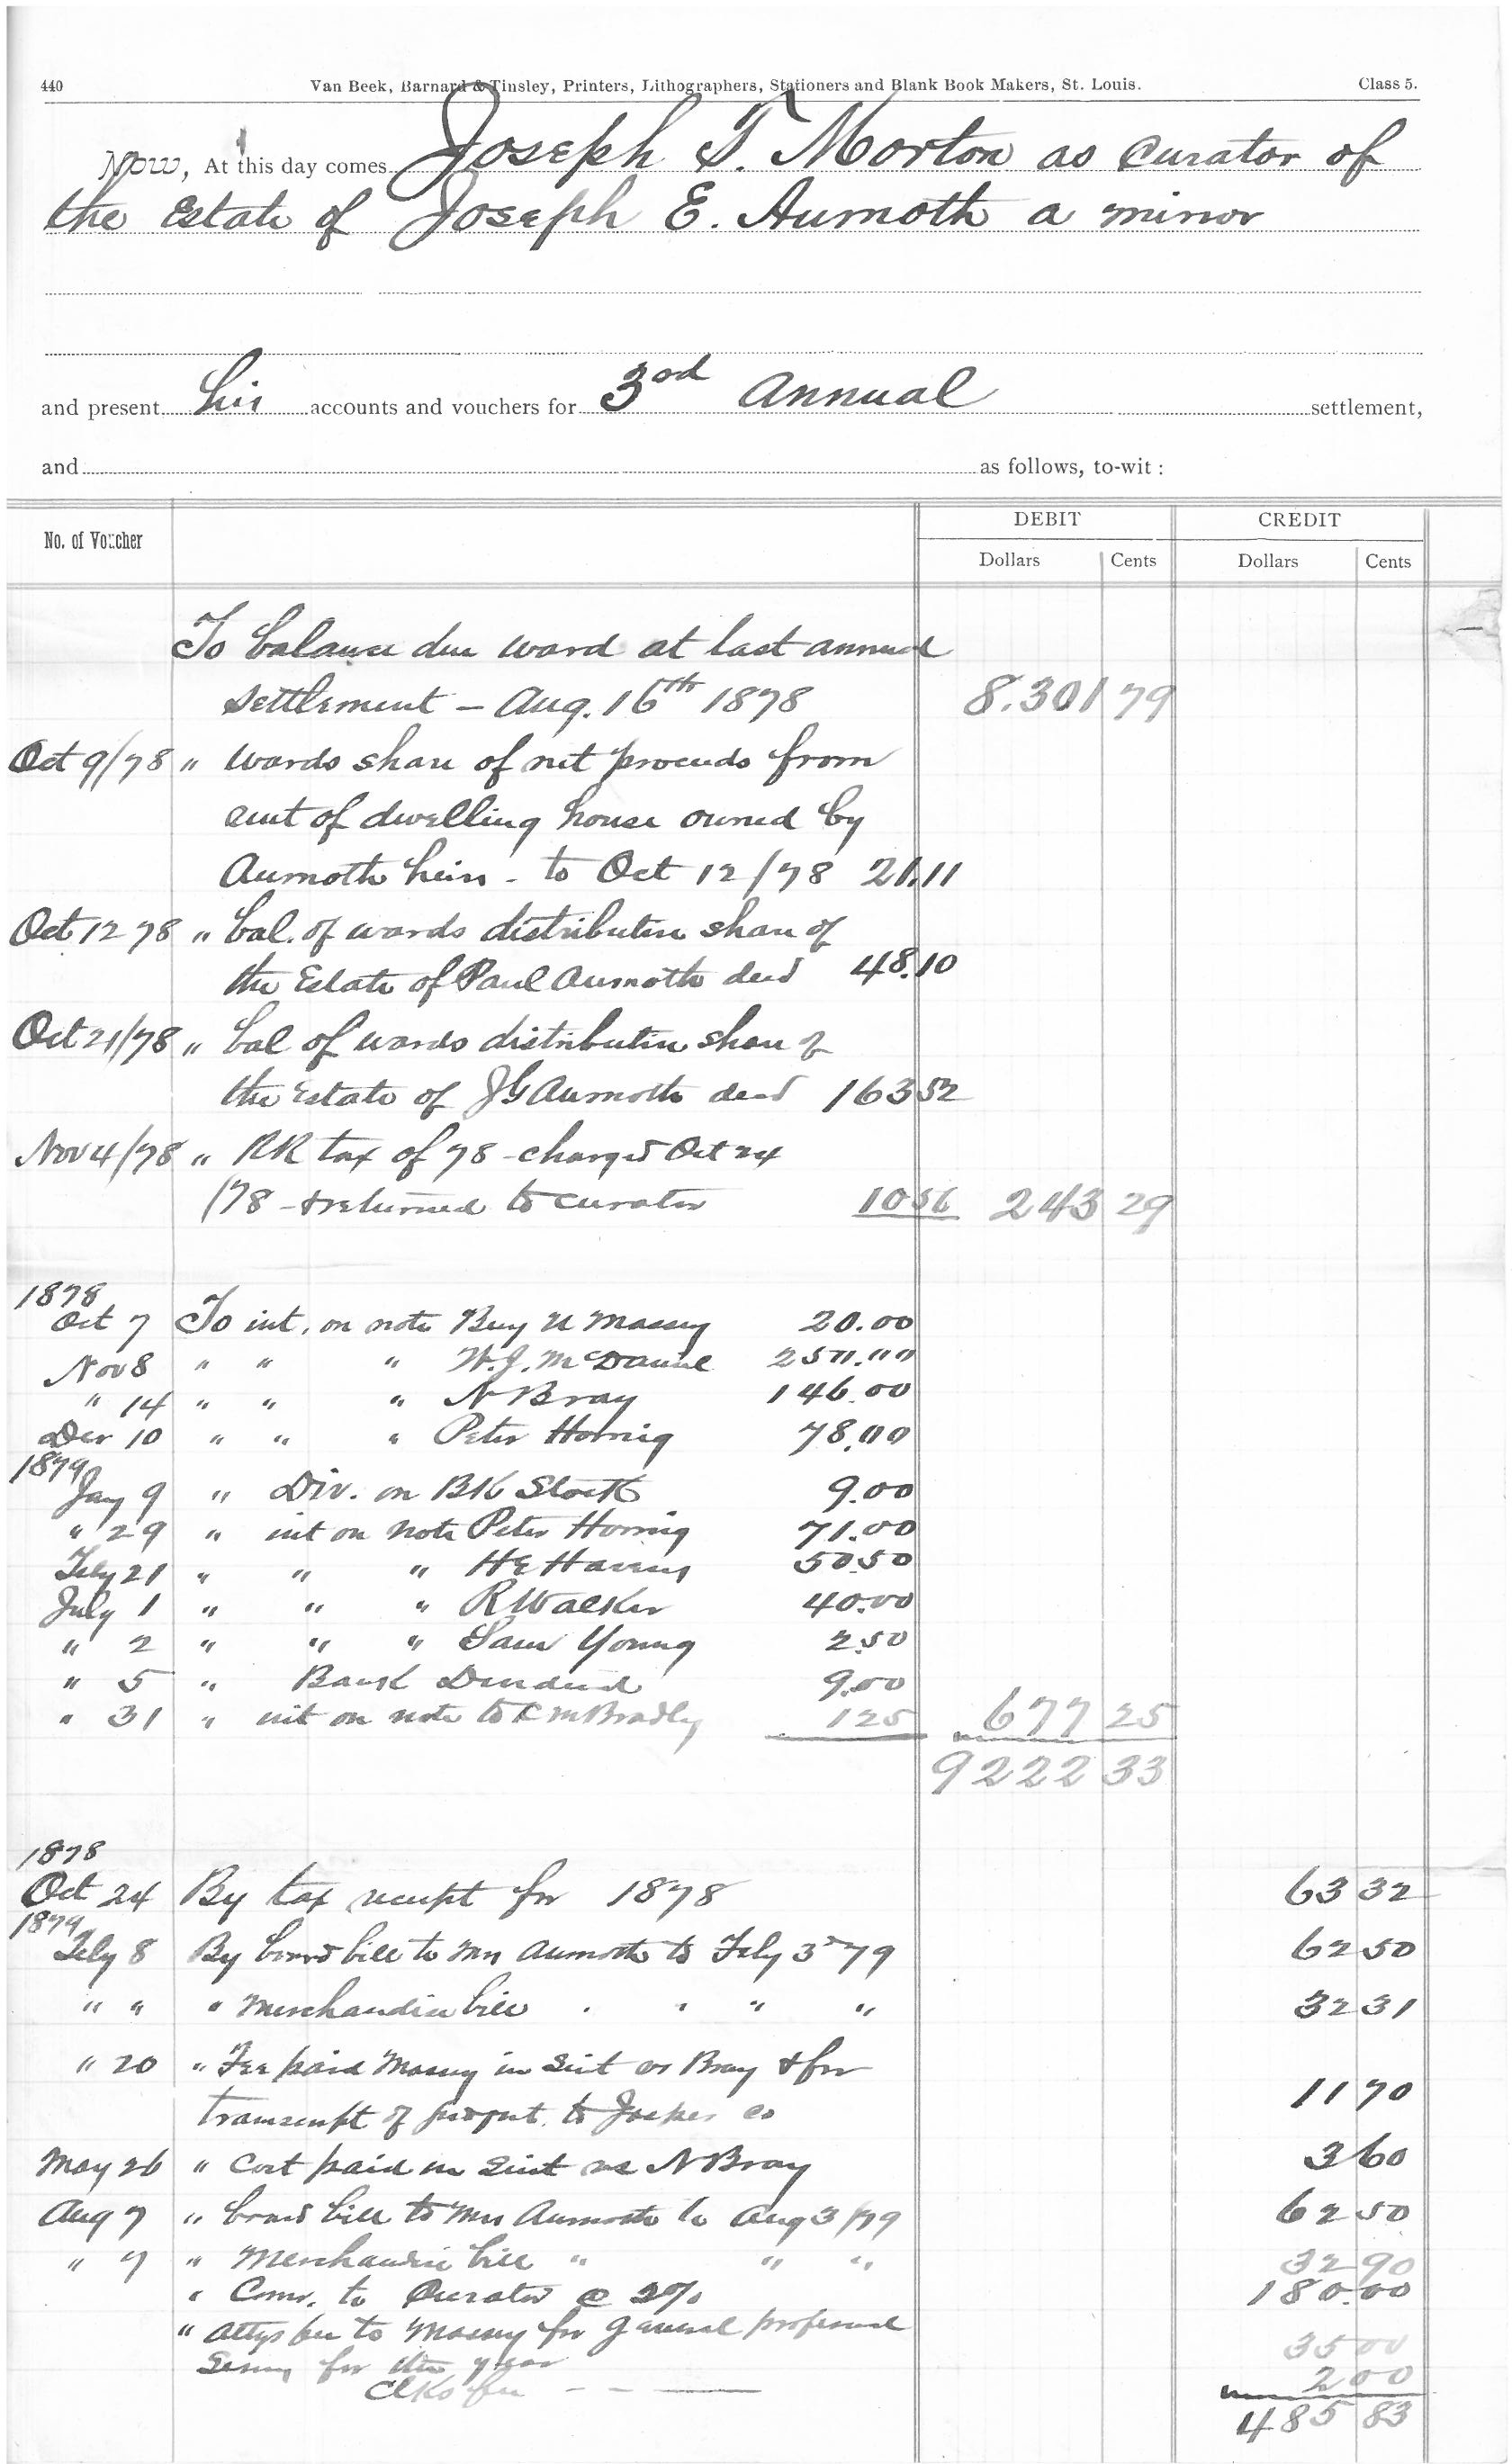 440 Van Beek, Barnard & Tinsley, Printers, Lithographers, Stationers and Blank Book Makers, St. Louis. Class 5.
Now, At this day comes Joseph T. Morton as Curator of
the Estate of Joseph E. Aumoth a minor
and present his accounts and vouchers for 3rd Annual settlement,
and as follows, to-wit:
No. of Voucher DEBIT CREDIT
Dollars Cents Dollars Cents
To balance due ward at last annual
settlement – Aug. 16th 1878 8.301 79
Oct 9/78 " wards share of net proceeds from
rent of dwelling house owned by
Aumoth heirs - to Oct 12/78 21.11
Oct 12 78 " bal. of wards distributive share of
the Estate of Paul Aumoth decd 48.10
Oct 21/78 " bal of wards distributive share of
the Estate of J G Aumoth decd 163 52
Nov 4/78 " RR tax of 78 - charged Oct 24
/78 - & returned to curator 10 56 243 29
1878
Oct 7 To int. on note Benj U Massey 20.00
Nov 8 " " " W.J. McDaniel 250.00
" 14 " " " N Bray 146.00
Dec 10 " " " Peter Hornig 78.00
1879
Jany 9 " Div. on BK Stock 9.00
" 29 " int on note Peter Hornig 71.00
Feby 21 " " " H E Havens 50.50
July 1 " " " R Walker 40.00
" 2 " " " Sam Young 2.50
" 5 " Bank Dividend 9.00
" 31 " int on note to C M Bradly 1 25 677 25
9222 33
1878
Oct 24 By tax receipt for 1878 63 32
1879
Feby 8 By board bill to Mrs Aumoth to Feby 3rd 79 62 50
" " " Merchandise bill " " " " 32 31
" 20 " Fee paid Massey in Suit vs Bray & for
transcript of judgmt. to Jasper Co 11 70
May 26 " Cost paid in Suit vs N Bray 3 60
Aug 7 " board bill to Mrs Aumoth to Aug 3/79 62 50
" 7 " Merchandise bill " " " 32 90
" Com. to Curator @ 2% 180.00
" Attys fee to Massey for general professional
Services for the year 35 00
Clks fee - - — 2 00
485 83